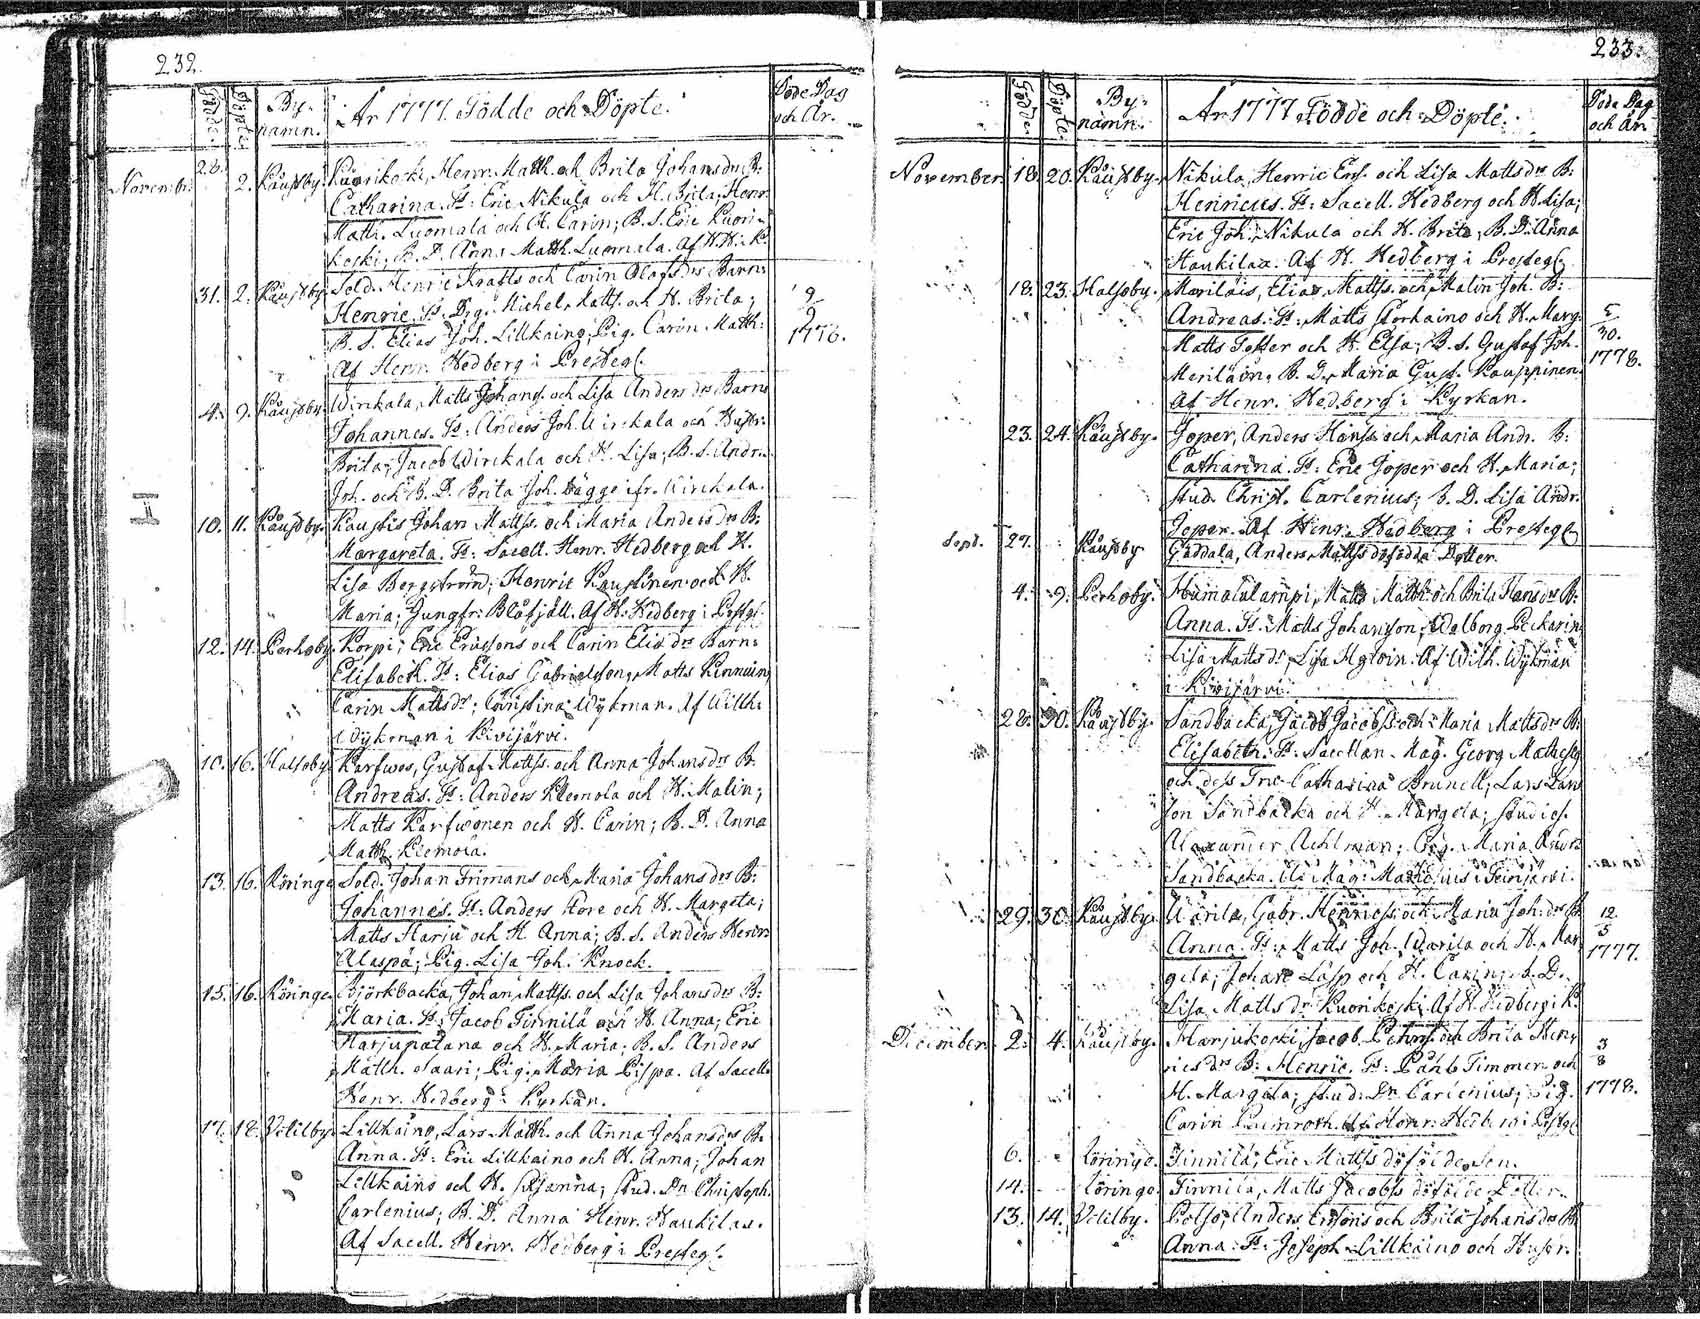 232.
Födde. Döpte. By namn. År 1777. Födde och Döpte. Döde Dag och År.
Novemb: 28. 2. Kaustby. Kuorikoski, Henr. Matth. och Brita Johans dr B:
Catharina. Ft: Eric Nikula och H. Brita; Henr.
Matth. Luomala och H. Carin; B. S. Eric Kuori-
koski; B. D. Anna Matth. Luomala. Af H. H. i K.
31. 2. Kaustby. Sold. Henric Krafts och Carin Olofs dr Barn:
Henric. Ft: Drg. Michel Matts. och H. Brita; 9/9 1778.
B. S. Elias Joh. Lillkaino; Pig. Carin Matth:
Af Henr. Hedberg i Presteg.
4. 9. Kaustby. Wirckala, Matts Johans. och Lisa Anders dr Barn:
Johannes. Ft: Anders Joh. Wirckala och Hustr:
Brita; Jacob Wirckala och H. Lisa; B. S. Andr.
Joh. och B. D. Brita Joh. bägge ifr. Wirckala.
10. 11. Kaustby. Kaustis Johan Mattss. och Maria Anders dr B:
Margareta. Ft: Sacell. Henr. Hedberg och H.
Lisa Bergström; Henric Kaustinen och H.
Maria; Jungfr: Blåfjäll. Af H. Hedberg i Prestg.
12. 14. Perhoby. Korpi; Eric Ericsons och Carin Elis dr Barn:
Elisabeth. Ft: Elias Gabrielsson; Matts Kinnuin
Carin Matts dr; Christina Wykman. Af Wilh:
Wykman i Kivijärvi.
10. 16. Halsoby. Karfwos, Gustaf Mattss. och Anna Johans dr B:
Andreas. Ft: Anders Klemola och H. Malin;
Matts Karfwonen och H. Carin; B. D. Anna
Matth. Klemola.
13. 16. Köringe. Sold. Johan Frimans och Maria Johans dr B:
Johannes. Ft: Anders Tore och H. Margeta;
Matts Harju och H. Anna; B. S. Anders Henr:
Alaspä; Pig. Lisa Joh. Knock.
15. 16. Köringe. Björkbacka, Johan Mattss. och Lisa Johans dr B:
Maria. Ft: Jacob Tinnilä och H. Anna; Eric
Harjupatana och H. Maria; B. S. Anders
Matth. Saari; Pig. Maria Pispa. Af Sacell.
Henr. Hedberg i Kyrkan.
17. 18. Vetilby. Lillkaino, Lars Matth. och Anna Johans dr B:
Anna. Ft: Eric Lillkaino och H. Anna; Johan
Lillkaino och H. Susanna; Stud. Dn Christoph.
Carlenius; B. D. Anna Henr. Haukilas.
Af Sacell. Henr. Hedberg i Presteg.
233.
Födde. Döpte. By namn. År 1777 Födde och Döpte. Döde Dag och År.
November. 18. 20. Kaustby. Nikula, Henric Ers. och Lisa Matts dr B:
Henricus. Ft: Sacell. Hedberg och H. Lisa;
Eric Joh. Nikula och H. Brita; B. D. Anna
Haukilaa. Af H. Hedberg i Presteg.
18. 23. Halsoby. Merilais, Elias Mattss. och Malin Joh. B:
Andreas. Ft: Matts Torkaino och H. Marg. 5/30. 1778.
Matts Tofter och H. Elsa; B. S. Gustaf Joh.
Meriläin; B. D. Maria Gust. Kauppinen.
Af Henr. Hedberg i Kyrkan.
23. 24. Kaustby. Joper, Anders Hanss. och Maria Andr. B:
Catharina. Ft: Eric Joper och H. Maria;
Stud. Christ. Carlenius; B. D. Lisa Andr.
Joper. Af Henr. Hedberg i Presteg.
Sept. 27. Kaustby Gäddala, Anders Mattss dödfödda Dotter.
4. 9. Perhoby. Humalalampi, Matts Matth. och Brita Hans dr B:
Anna. Ft: Matts Johansson; Walborg Peckarin
Lisa Matts dr Lisa Af Wilh. Wykman
i Kivijärvi.
28. 30. Kaustby. Sandbacka, Jacob Jacobss. och Maria Matts dr B:
Elisabeth. Ft: Sacellan. Mag. Georg
och dess Fru Catharina Brunell; Lars Lars
son Sandbacka och H. Margeta; Studios.
Alexander Achlman; Pig. Maria Andr:
Sandbacka. Af Mag: i
29. 30. Kaustby. Uärila, Gabr. Henricss. och Maria Joh. dr B: 12/5 1777.
Anna. Ft: Matts Joh. Wärila och H. Mar
geta; Johan Lasp och H. Carin; B. D.
Lisa Matts dr Kuorikoski. Af H. Hedberg i K.
December. 2. 4. Kaustby. Marjukoski, Jacob Pehrs. och Brita Hen-
rics dr B: Henric. Ft: Pähl Timmer. och 3/8 1778.
H. Margeta; Stud. Dn Carlenius; Pig.
Carin Af Henr: Hedb. i Prestg.
6. Köringe. Tinnilä, Eric Mattss dödfödde Son.
14. Köringe. Tinnilä, Matts Jacobss dödfödde Dotter.
13. 14. Vetilby. Polso, Anders Ersons och Brita Johans dr B:
Anna. Ft: Joseph Lillkaino och Hustr: